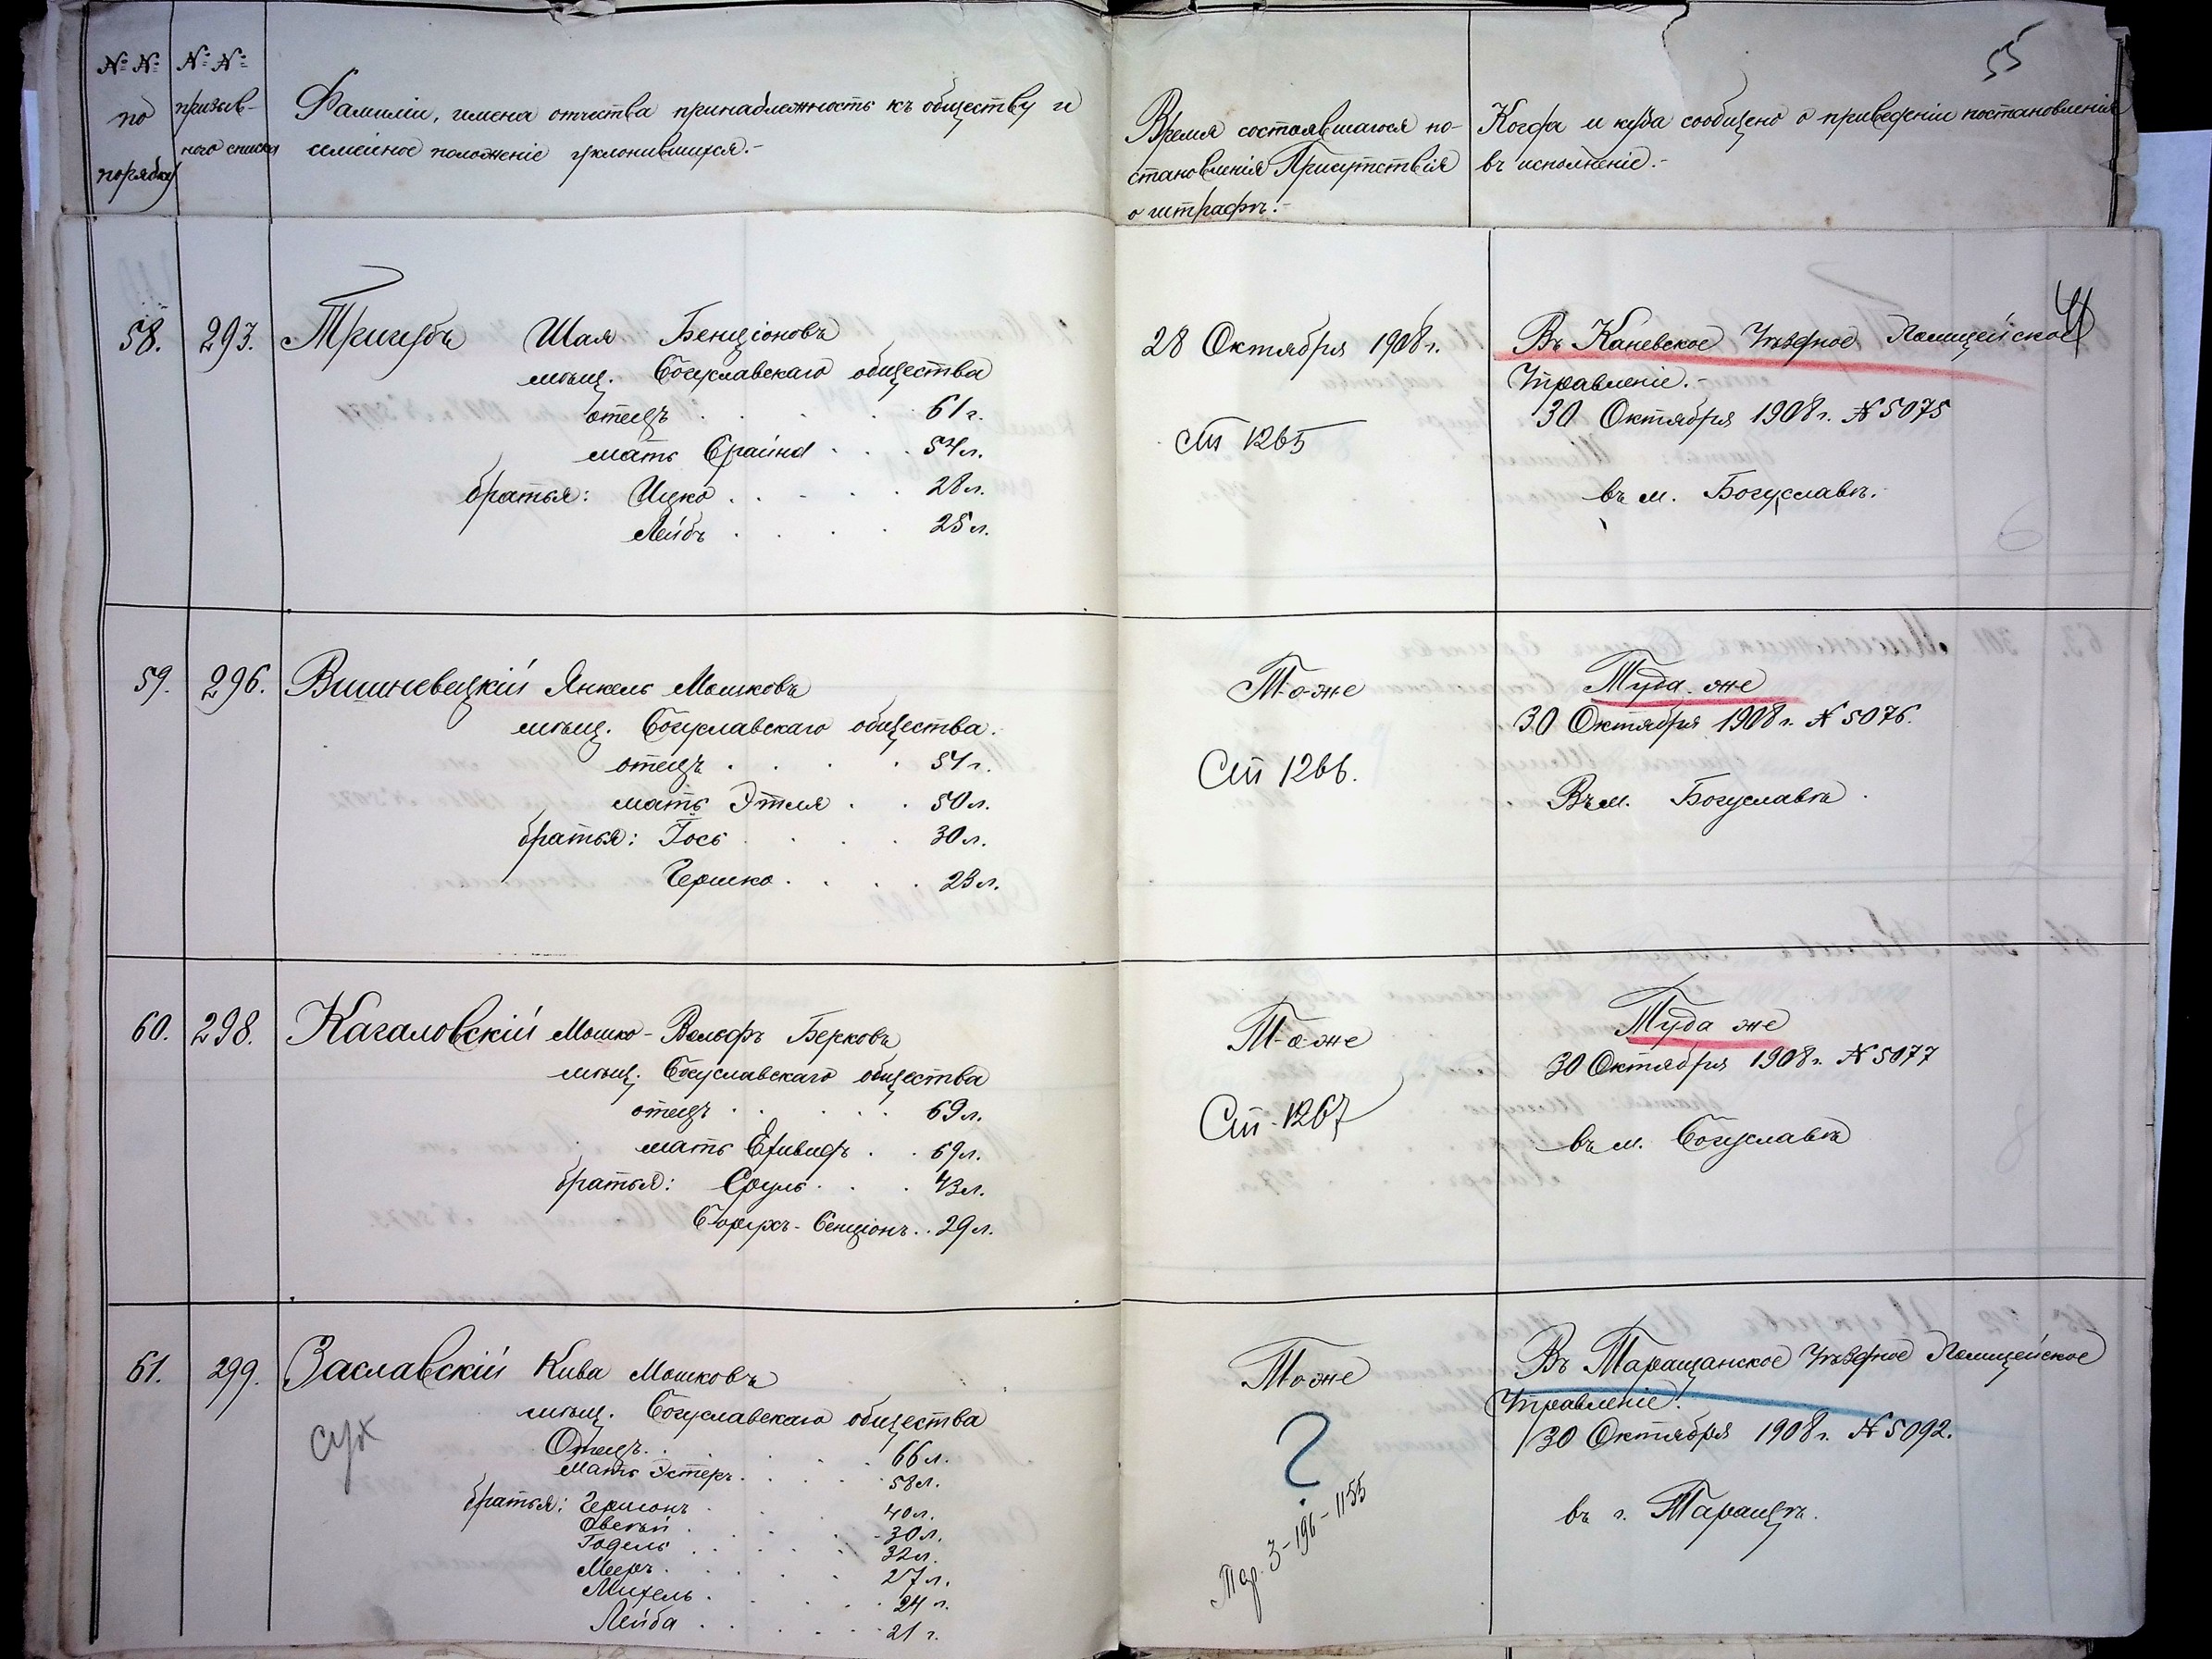 №№ по порядку
№№ призыв-
ного списка
Фамиліи, имена отчества принадлежность къ обществу и
семейное положеніе уклонившихся.-
Время состоявшагося по-
становленія Присутствія
о штрафѣ.-
Когда и куда сообщено о приведеніи постановленія
въ исполненіе.-
55
41
58. 293. Тригубъ Шая Бенціоновъ
мѣщ. Богуславскаго общества
отецъ . . . . 61 г.
мать Фрайна . . . 54 л.
братья: Ицко . . . . 28 л.
Лейбъ . . . . 25 л.
28 Октября 1908 г.
Ст 1265
Въ Каневское Уѣздное Полицейское
Управленіе.-
30 Октября 1908 г. № 5075
въ м. Богуславѣ.-
59. 296. Вишневецкій Янкель Мошковъ
мѣщ. Богуславскаго общества.
отецъ . . . . 51 г.
мать Этля . . 50 л.
братья: Іось . . . . 30 л.
Гершко . . . . 23 л.
Тоже
Ст 1266.
Туда-же
30 Октября 1908 г. № 5076.
Въ м. Богуславѣ.
60. 298. Кагаловскій Мошко-Вольфъ Берковъ
мѣщ. Богуславскаго общества
отецъ . . . . 69 л.
мать . . 69 л.
братья: Сруль . . . 43 л.
Борухъ-Бенціонъ . . 29 л.
Тоже
Ст. 1267
Туда же
30 Октября 1908 г. № 5077
въ м. Богуславѣ
61. 299. Заславскій Кива Мошковъ
мѣщ. Богуславскаго общества
Отецъ . . . . 66 л.
Мать Эстеръ . . . . 58 л.
братья: Гершонъ . . . . 40 л.
Овсѣй . . . . 30 л.
Годель . . . . 32 л.
Мееръ . . . . 27 л.
Михель . . . . 24 г.
Лейба . . . . 21 г.
Тоже
?
Тар. 3-196-1155
Въ Таращанское Уѣздное Полицейское
Управленіе.
30 Октября 1908 г. № 5092.
въ г. Таращѣ.